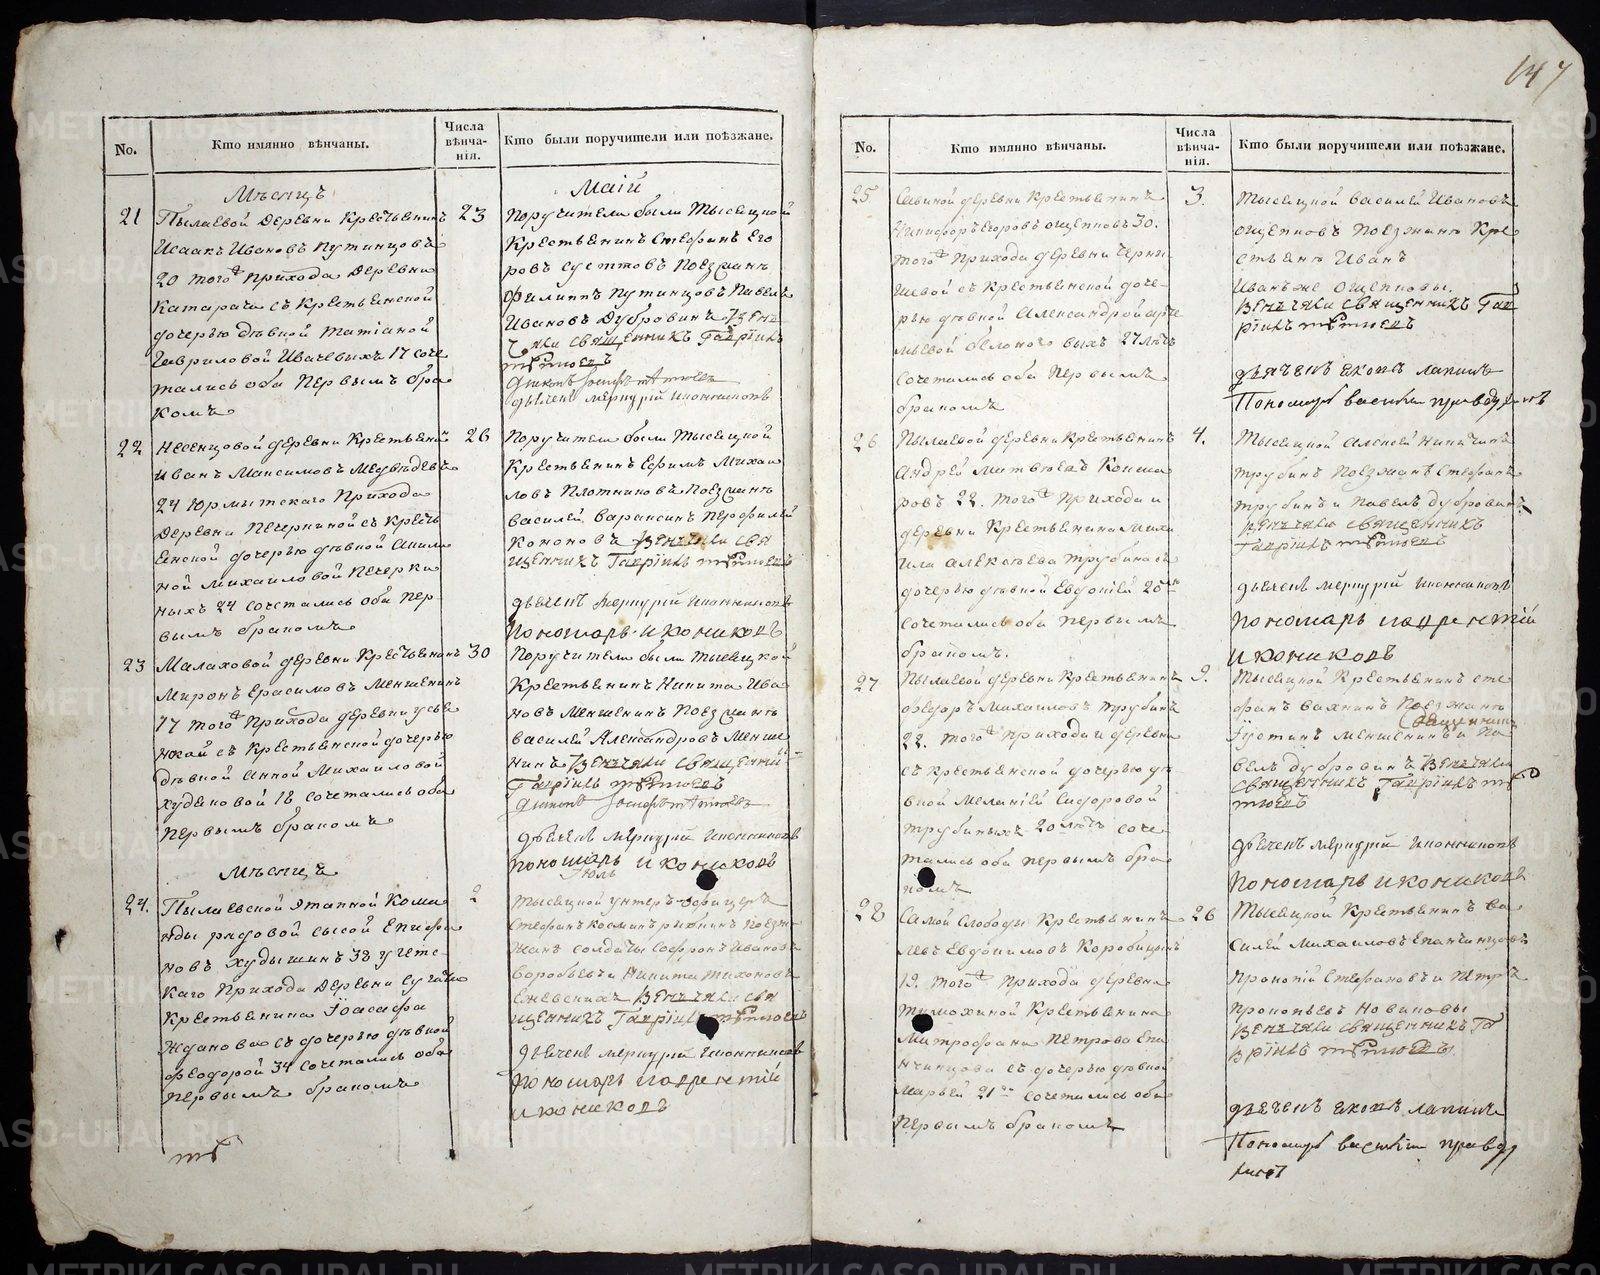 147
No.
Кто имянно вѣнчаны.
Числа вѣнча-нія.
Кто были поручители или поѣзжане.
Мѣсяцъ
Маій
21
Пылаевой деревни крестьянинъ
Исаакъ Ивановъ Путинцовъ
20 того прихода деревни
Катарача съ крестьянской
дочерью дѣвкой Татіаной
Гавриловой 17 соче
тались оба первымъ бра
комъ
23
Поручители были тысецкой
крестьянинъ Стефанъ Его
ровъ поезжанѣ
Филиппъ Путинцовъ Павелъ
Ивановъ Дубровинъ Вѣн
чали священникъ Гав
дьячекъ меркурій иконниковъ
22
деревни крестьянин
Иванъ Максимовъ Медвѣдевъ
24 Юрмытскаго прихода
деревни Печеркиной съ кресть
янской дочерью дѣвкой Акили
ной Михайловой Печерки
ныхъ 24 сочетались оба пер
вымъ бракомъ
26
Поручители были тысецкой
крестьянинъ Ефимъ Михаи
ловъ Плотниковъ поезжанѣ
Василей Перфилей
Кононовъ Вѣнчали свя
щенникъ Гавріилъ
дьячекъ меркурій иконниковъ
пономарь иконниковъ
23
Малаховой деревни крестьянинъ
Миронъ Герасимовъ Меншенинъ
17 того прихода деревни
съ крестьянской дочерью
дѣвкой Анной Михайловой
Худяковой 18 сочетались оба
первымъ бракомъ
30
Поручители были тысецкой
крестьянинъ Никита Ива
новъ Меншенинъ поезжанѣ
Василей Александровъ Менше
нинъ Вѣнчали священни
Гавріилъ
дьячекъ меркурій иконниковъ
пономарь иконниковъ
Мѣсяцъ
Іюль
24.
Пылаевской этапной кома
нды рядовой Сысой Епифа
новъ Худышинъ 38
каго прихода деревни
крестьянина Іоасафа
Жданова съ дочерью дѣвкой
Феодорой 34 сочетались оба
первымъ бракомъ
2
тысецкой унтеръ-офицеръ
Стефанъ Косминъ поезж
жанѣ солдаты Софронъ Ивановъ
Воробьевъ и Никита Тихоновъ
Вѣнчали свя
щенникъ Гавріилъ
дьячекъ меркурій иконниковъ
пономарь лаврентій
иконниковъ
No.
Кто имянно вѣнчаны.
Числа вѣнча-нія.
Кто были поручители или поѣзжане.
25
Савиной деревни крестьянинъ
Никифоръ Егоровъ Ощепковъ 30.
того прихода деревни Черни
шевой съ крестьянской доче
рью дѣвкой Александрой Арте
мьевой 27 лѣтъ
сочетались оба первымъ
бракомъ
3.
тысецкой Василей Ивановъ
Ощепковъ поезжанѣ кре
стьянѣ Иванъ
Иванъ же Ощепковы.
Вѣнчали священникъ Гав
ріилъ
дьячекъ яковъ лапинъ
Пономарь василей
26
Пылаевой деревни крестьянинъ
Андрей Матвѣевъ Кокша
ровъ 22. того прихода и
деревни крестьянина Миха
ила Алексѣева Трубина съ
дочерью дѣвкой Евдокіей 20
сочетались оба первымъ
бракомъ.
4.
тысецкой Алексей Никитинъ
Трубинъ поезжанѣ Стефанъ
Трубинъ и Павелъ Дубровинъ
Вѣнчали священникъ
Гавріилъ
дьячекъ меркурій иконниковъ
пономарь лаврентій
иконниковъ
27
Пылаевой деревни крестьянинъ
Федоръ Михайловъ Трубинъ
22. того прихода и деревни
съ крестьянской дочерью дѣ
вкой Меланіей Сидоровой
Трубиныхъ 20 лѣтъ соче
тались оба первымъ бра
комъ
9.
тысецкой крестьянинъ Сте
фанъ Вахнинъ поезжанѣ
Іустинъ Меншенинъ и Па
велъ Дубровинъ Вѣнчали
священникъ Гавріилъ
дьячекъ меркурій иконниковъ
пономарь иконниковъ
28
Самой Слободы крестьянинъ
Левъ Евдокимовъ Коробицынъ
19. того прихода деревни
Тимохиной крестьянина
Митрофана Петрова Епа
нчинцова съ дочерью дѣвкой
Марьей 21 сочетались оба
первымъ бракомъ
26
тысецкой крестьянинъ Ва
силей Михайловъ Епанчинцовъ
Прокопій Стефановъ и Петръ
Прокопьевъ Новиковы
Вѣнчали священникъ Га
вріилъ
дьячекъ яковъ лапинъ
Пономарь василей